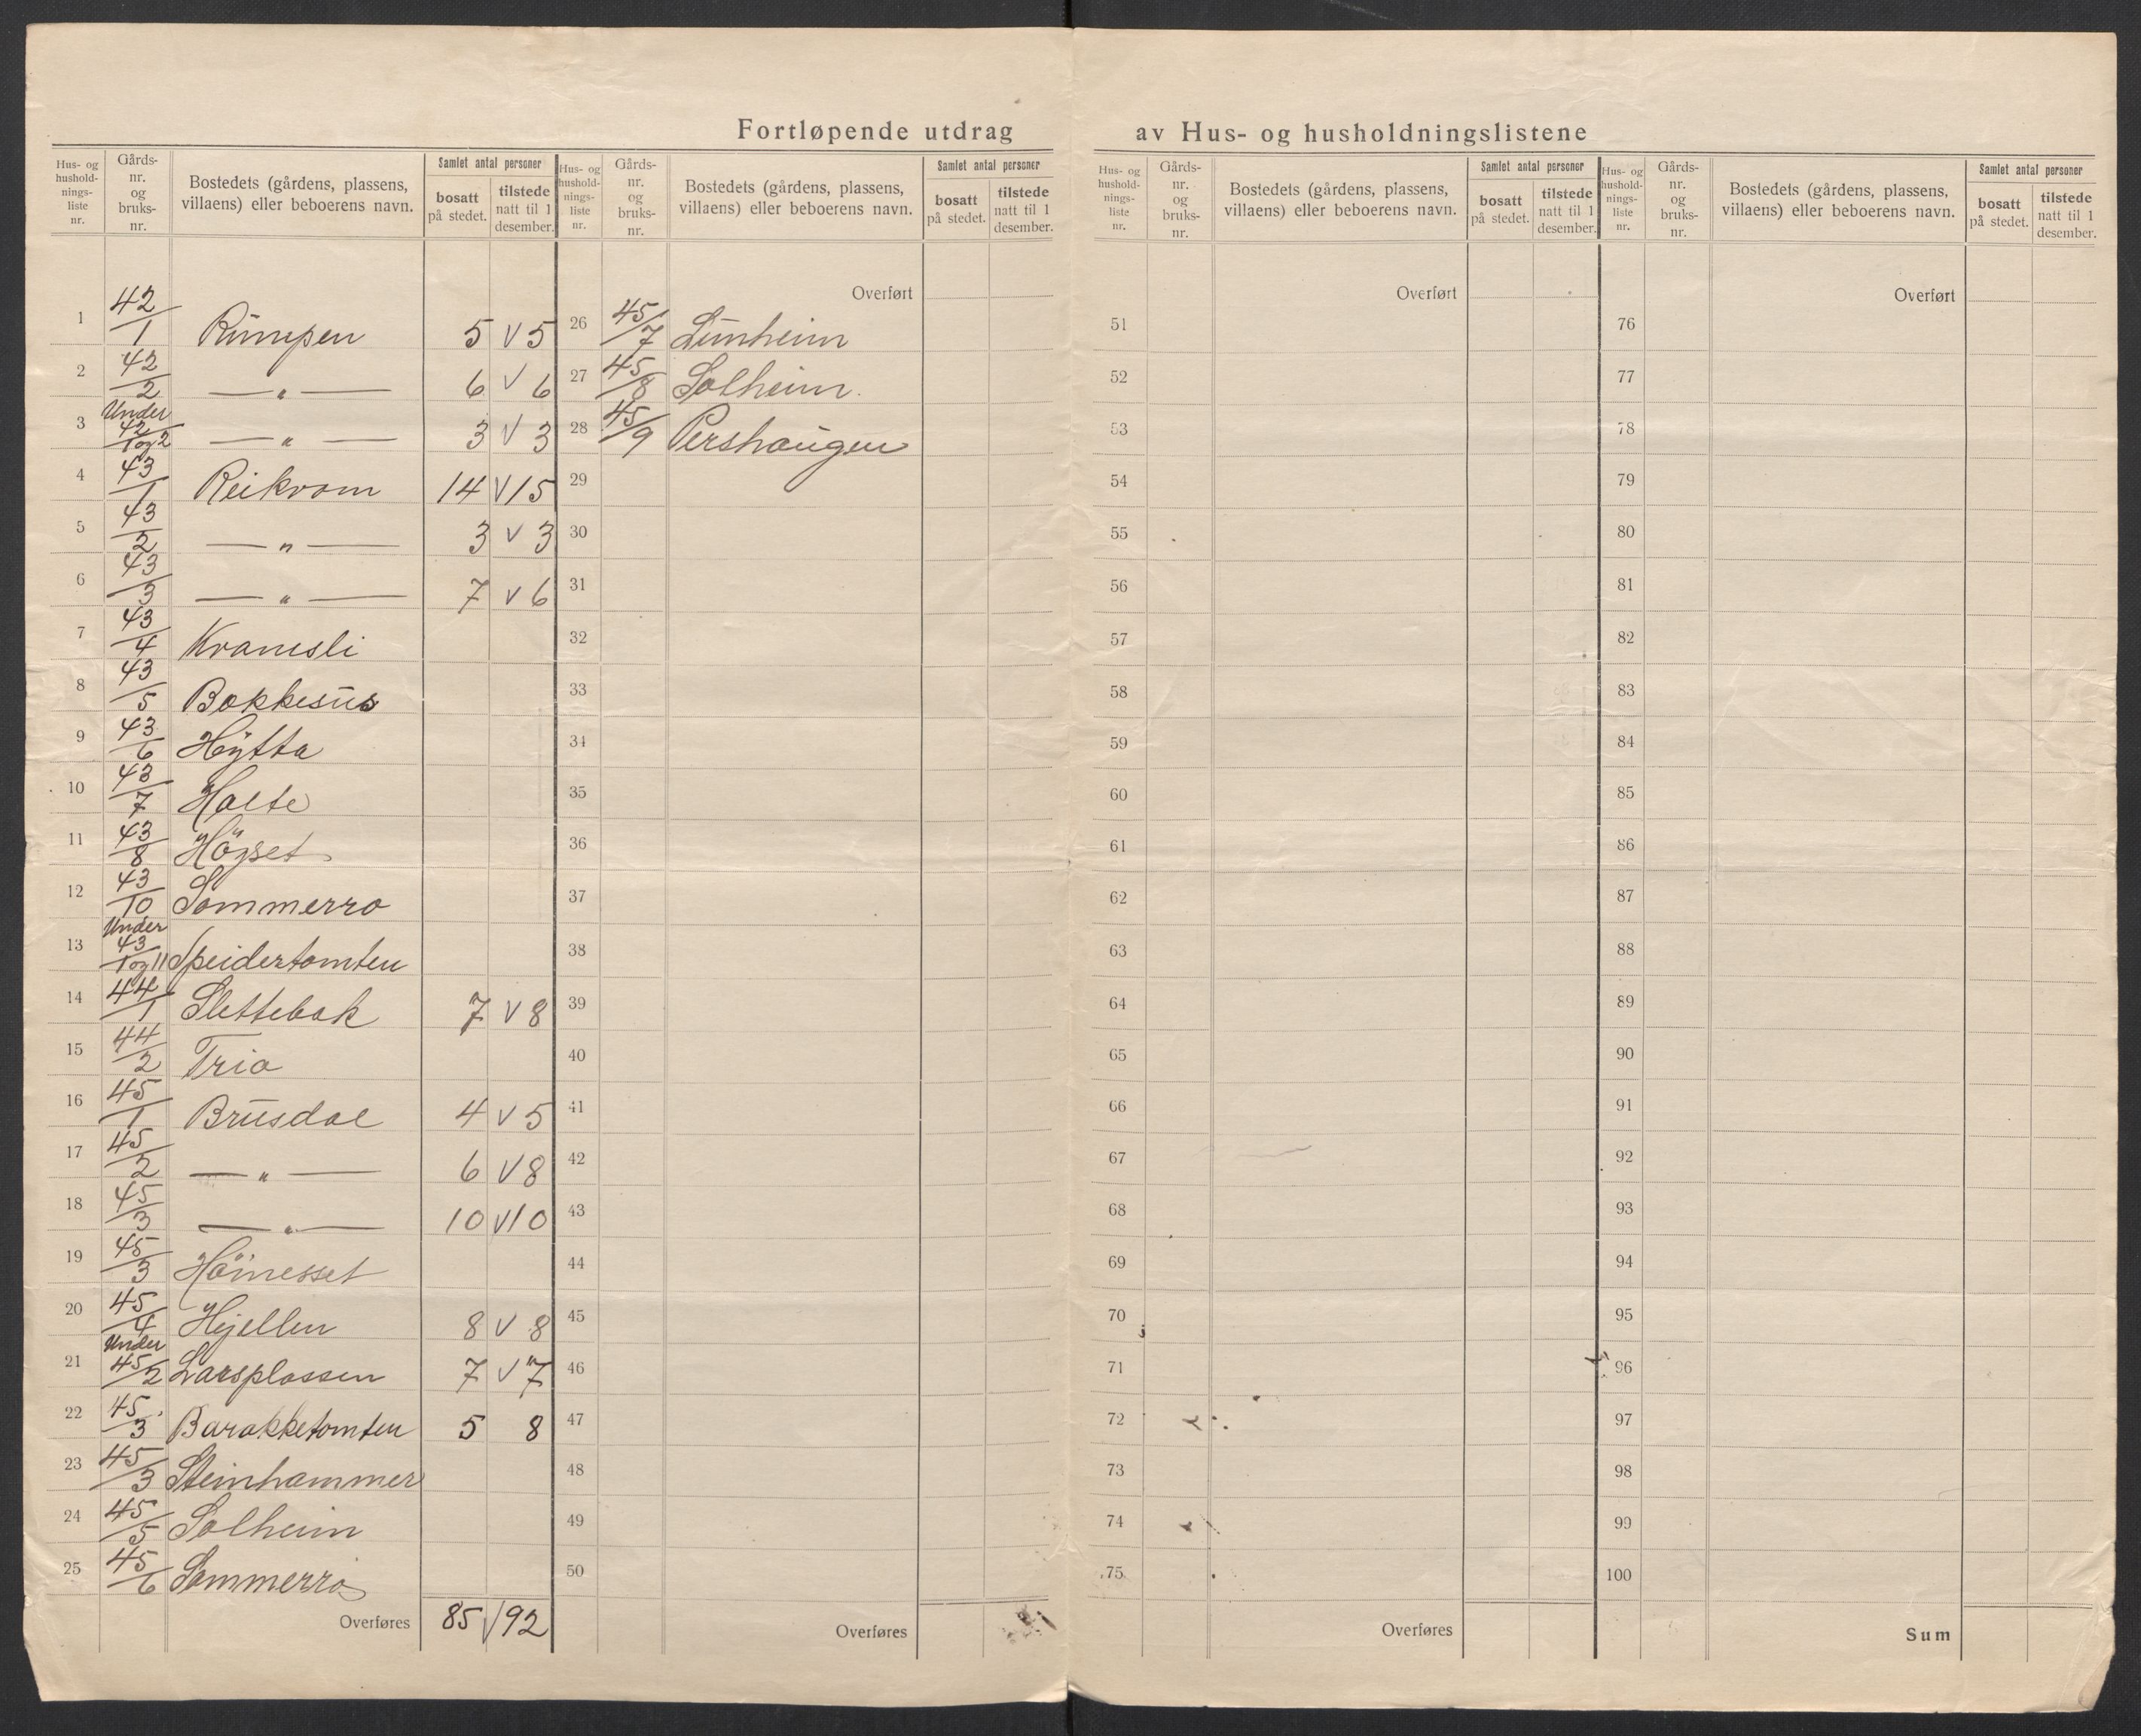 Fortløpende utdrag av Hus- og husholdningslistene
Hus- og hushold- nings- liste nr. | Gårds- nr. og bruks- nr. | Bostedets (gårdens, plassens, villaens) eller beboerens navn. | Samlet antal personer | bosatt på stedet. | tilstede natt til 1 desember.
Hus- og hushold- nings- liste nr. | Gårds- nr. og bruks- nr. | Bostedets (gårdens, plassens, villaens) eller beboerens navn. | Samlet antal personer | bosatt på stedet. | tilstede natt til 1 desember.
Hus- og hushold- nings- liste nr. | Gårds- nr. og bruks- nr. | Bostedets (gårdens, plassens, villaens) eller beboerens navn. | Samlet antal personer | bosatt på stedet. | tilstede natt til 1 desember.
Hus- og hushold- nings- liste nr. | Gårds- nr. og bruks- nr. | Bostedets (gårdens, plassens, villaens) eller beboerens navn. | Samlet antal personer | bosatt på stedet. | tilstede natt til 1 desember.
1 42/1 Rumpen 5 V 5
2 42/2 — " — 6 V 6
3 Under 42/1 og 2 — " — 3 V 3
4 43/1 Reikvam 14 V 15
5 43/2 — " — 3 V 3
6 43/3 — " — 7 V 6
7 43/4 Kvamsli
8 43/5 Bakkesus
9 43/6 Hytta
10 43/7 Holte
11 43/8 Högset
12 43/10 Sommerro
13 Under 43/1 og 11 Speidertomten
14 44/1 Slettebak 7 V 8
15 44/2 Trio
16 45/1 Brusdal 4 V 5
17 45/2 — " — 6 V 8
18 45/3 — " — 10 V 10
19 45/3 Höinesset
20 45/4 Hjellen 8 V 8
21 Under 45/2 Larsplassen 7 V 7
22 45/3 Barakketomten 5 8
23 45/3 Steinhammer
24 45/5 Solheim
25 45/6 Sommerro
Overføres 85 V 92
Overført
26 45/7 Lunheim
27 45/8 Solheim.
28 45/9 Pershaugen
29
30
31
32
33
34
35
36
37
38
39
40
41
42
43
44
45
46
47
48
49
50
Overføres
Overført
51
52
53
54
55
56
57
58
59
60
61
62
63
64
65
66
67
68
69
70
71
72
73
74
75
Overføres
Overført
76
77
78
79
80
81
82
83
84
85
86
87
88
89
90
91
92
93
94
95
96
97
98
99
100
Sum